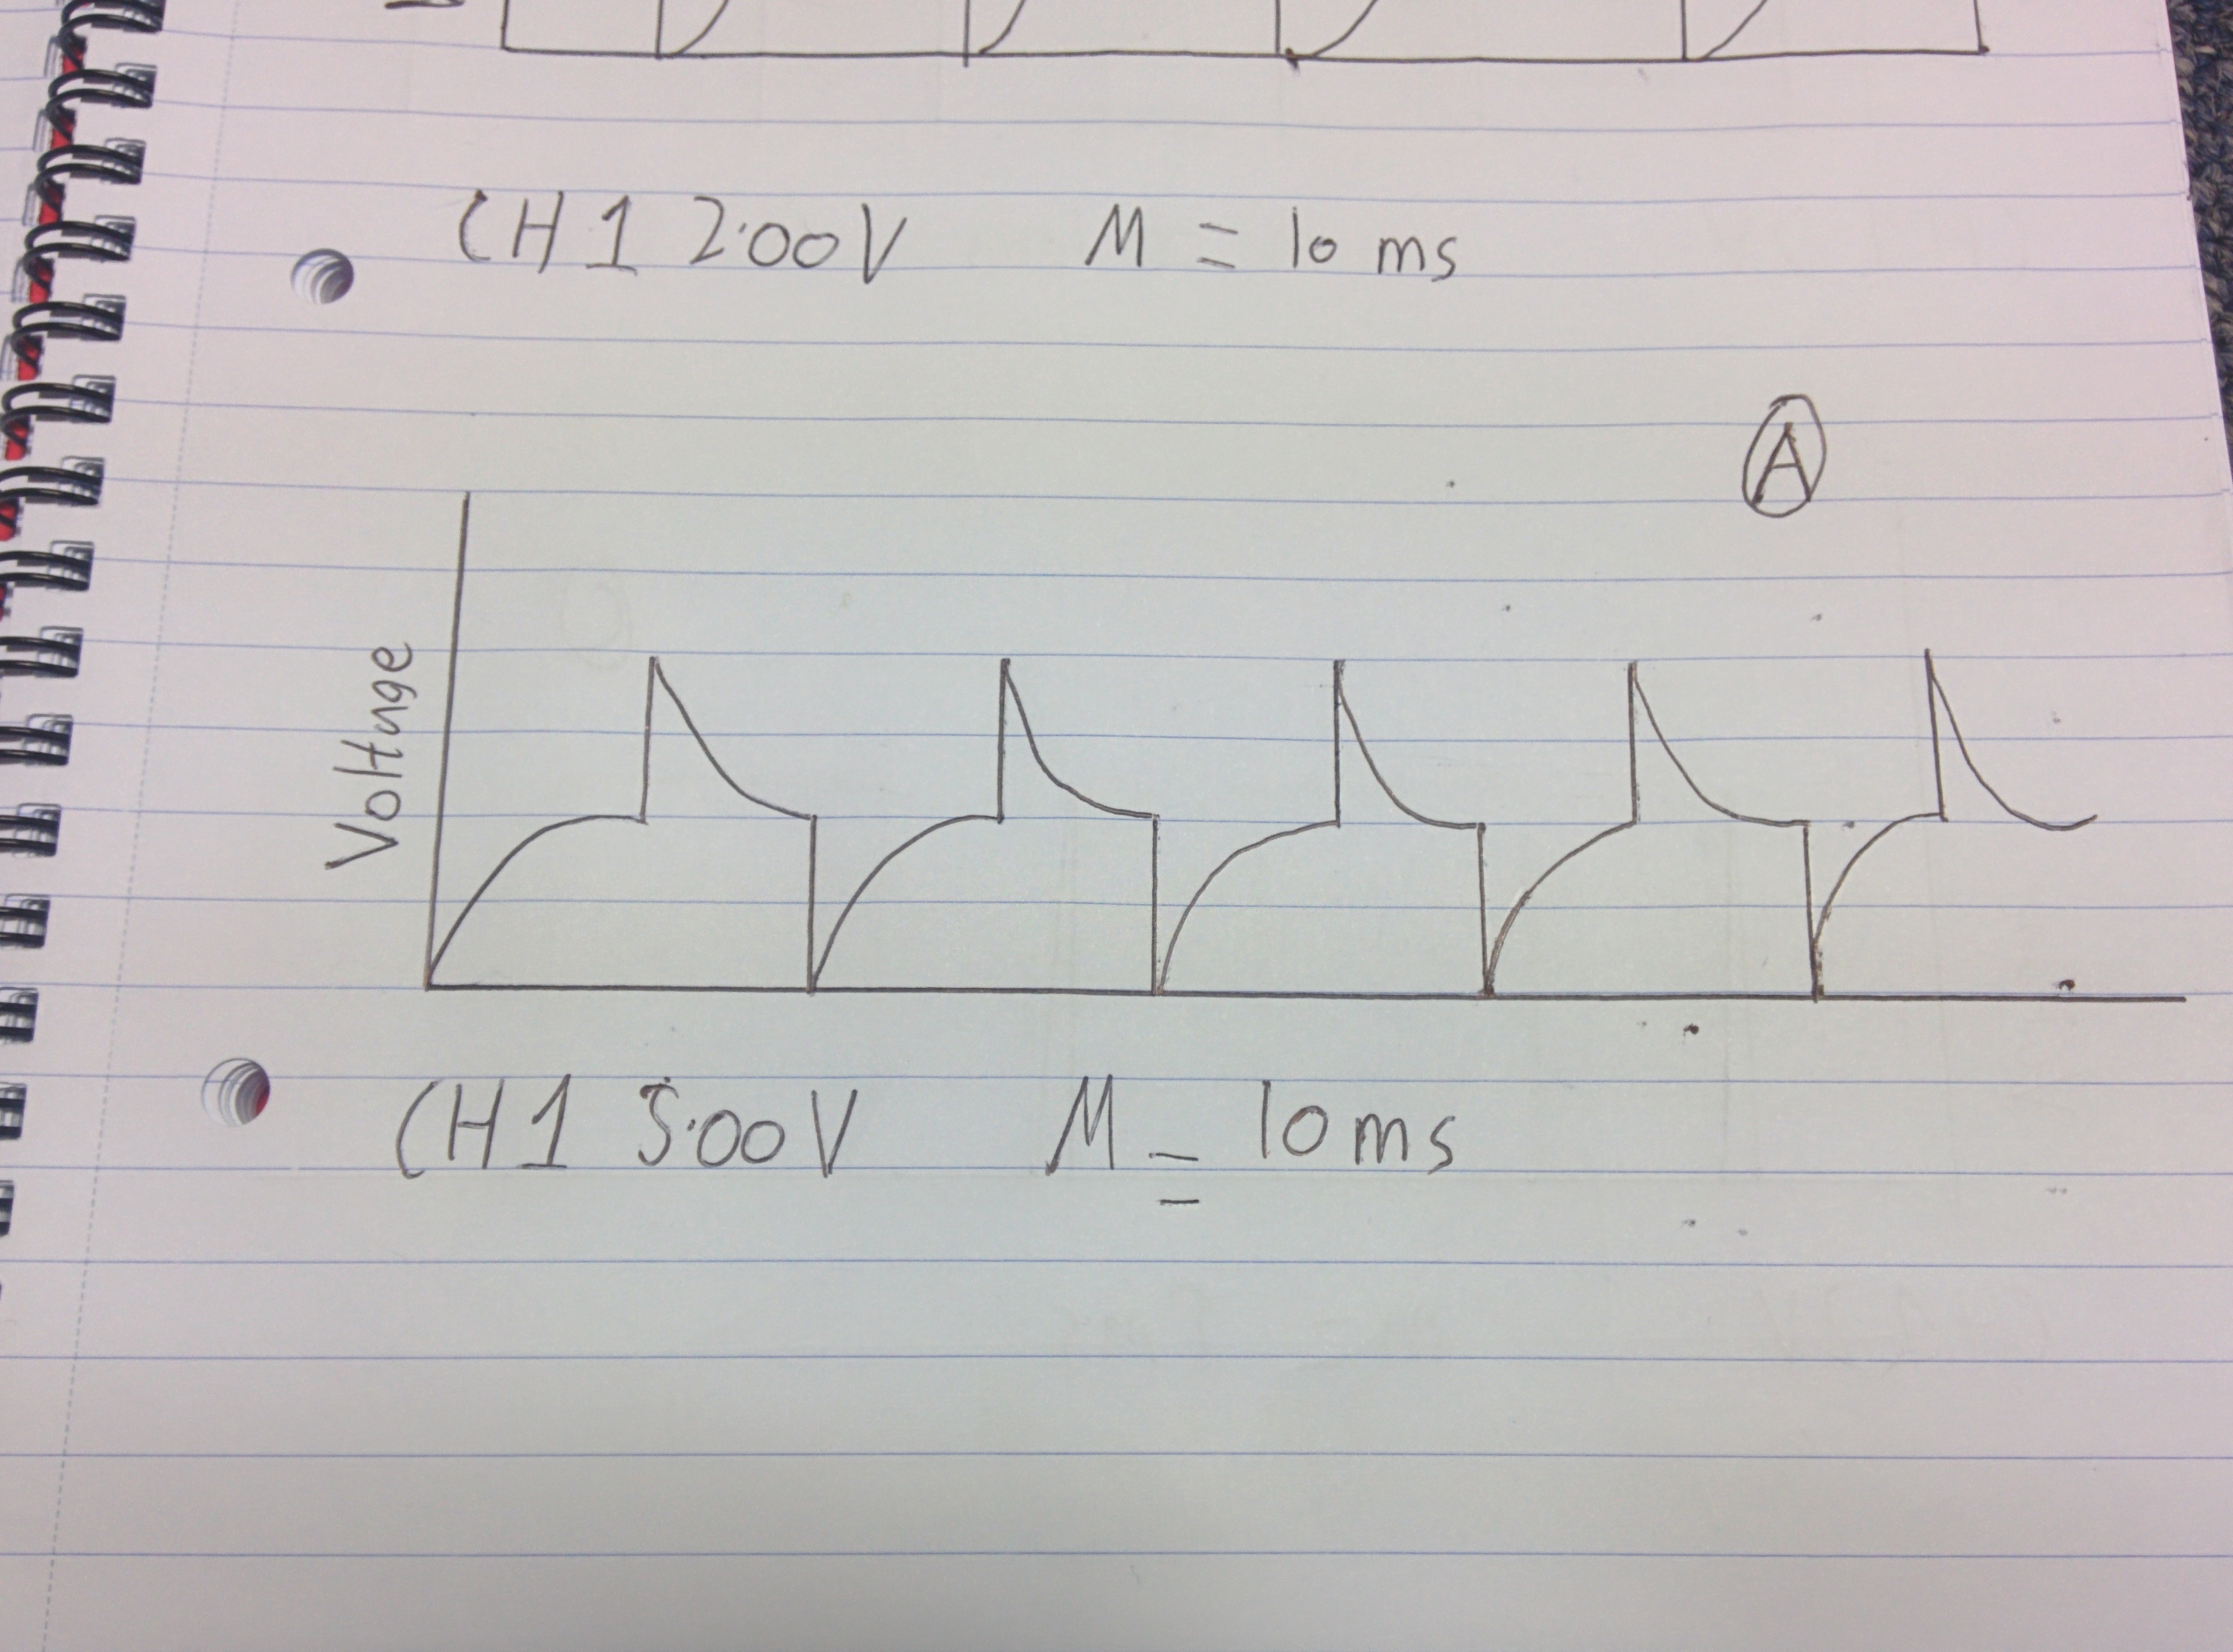 CH1 2.00V M = 10 ms
A
Voltage
CH1 5.00V M = 10ms